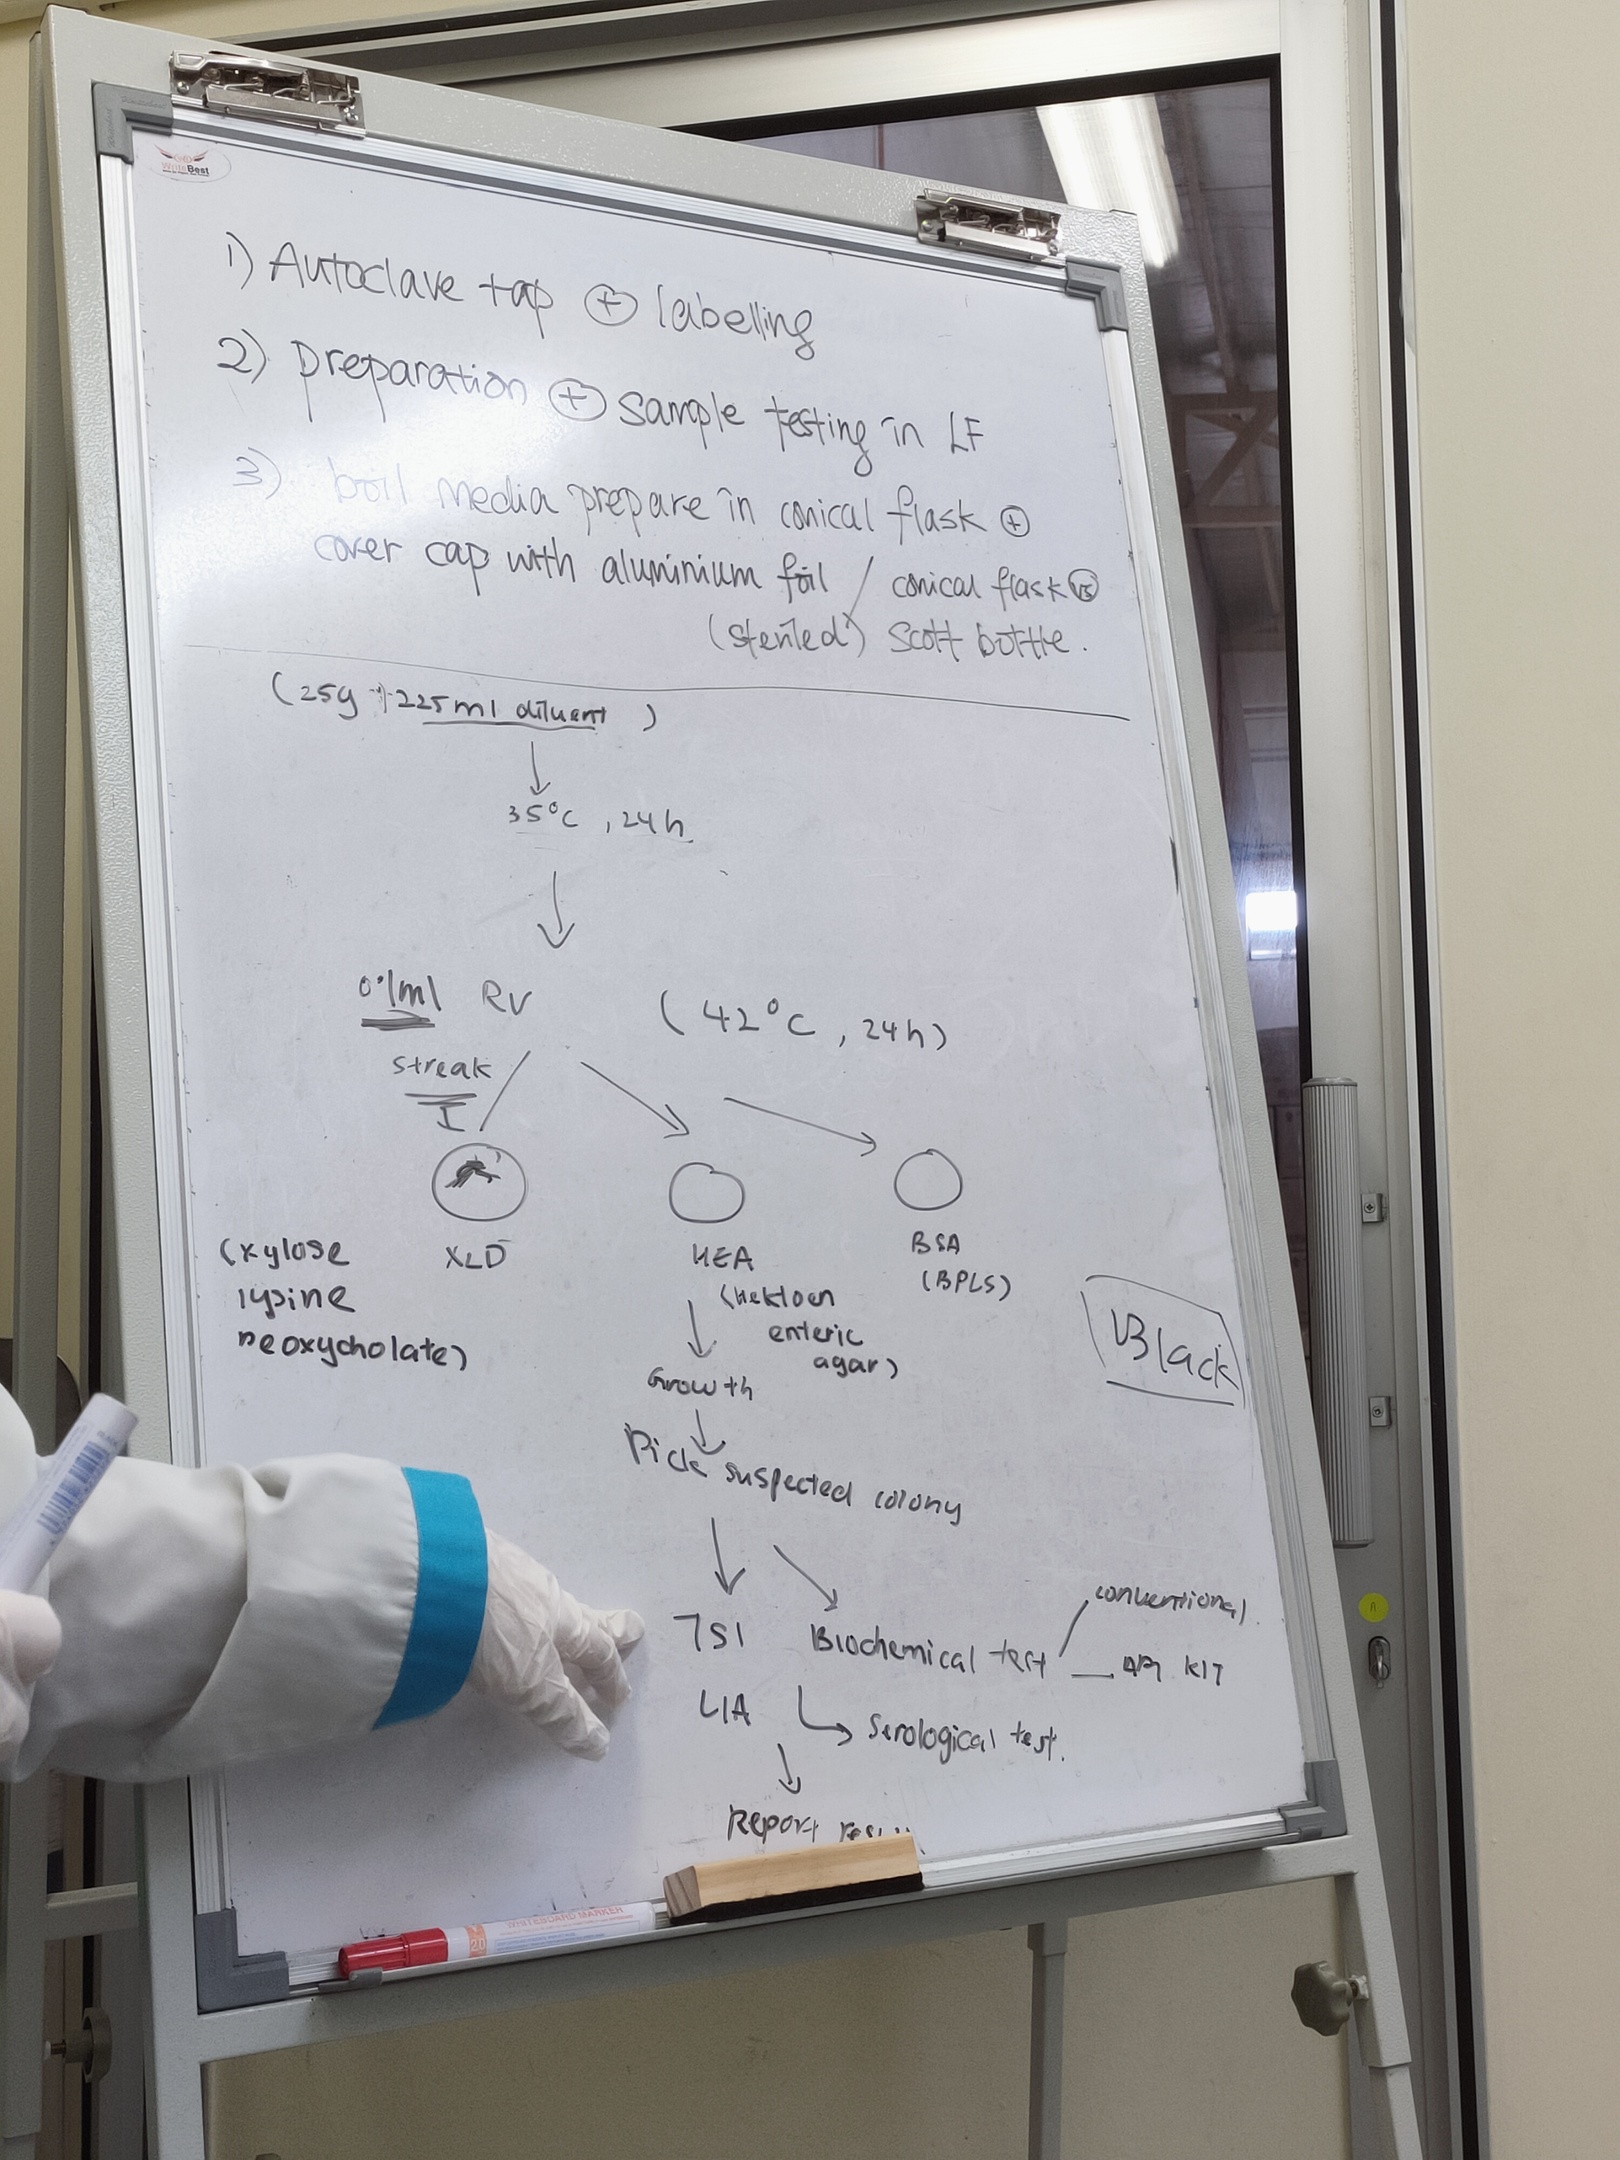 WriteBest
1) Autoclave tap ⊕ labelling
2) preparation ⊕ sample testing in LF
3) boil media prepare in conical flask ⊕
cover cap with aluminium foil / conical flask vs
(steriled) Scott bottle.
(25g + 225ml diluent)
35°C, 24h
0.1ml RV (42°C, 24h)
streak
XLD
(xylose
lysine
deoxycholate)
HEA
(Hektoen
enteric
agar)
BSA
(BPLS)
Black
Growth
Pick suspected colony
TSI
LIA
Biochemical test
conventional
API KIT
Serological test.
Report
A